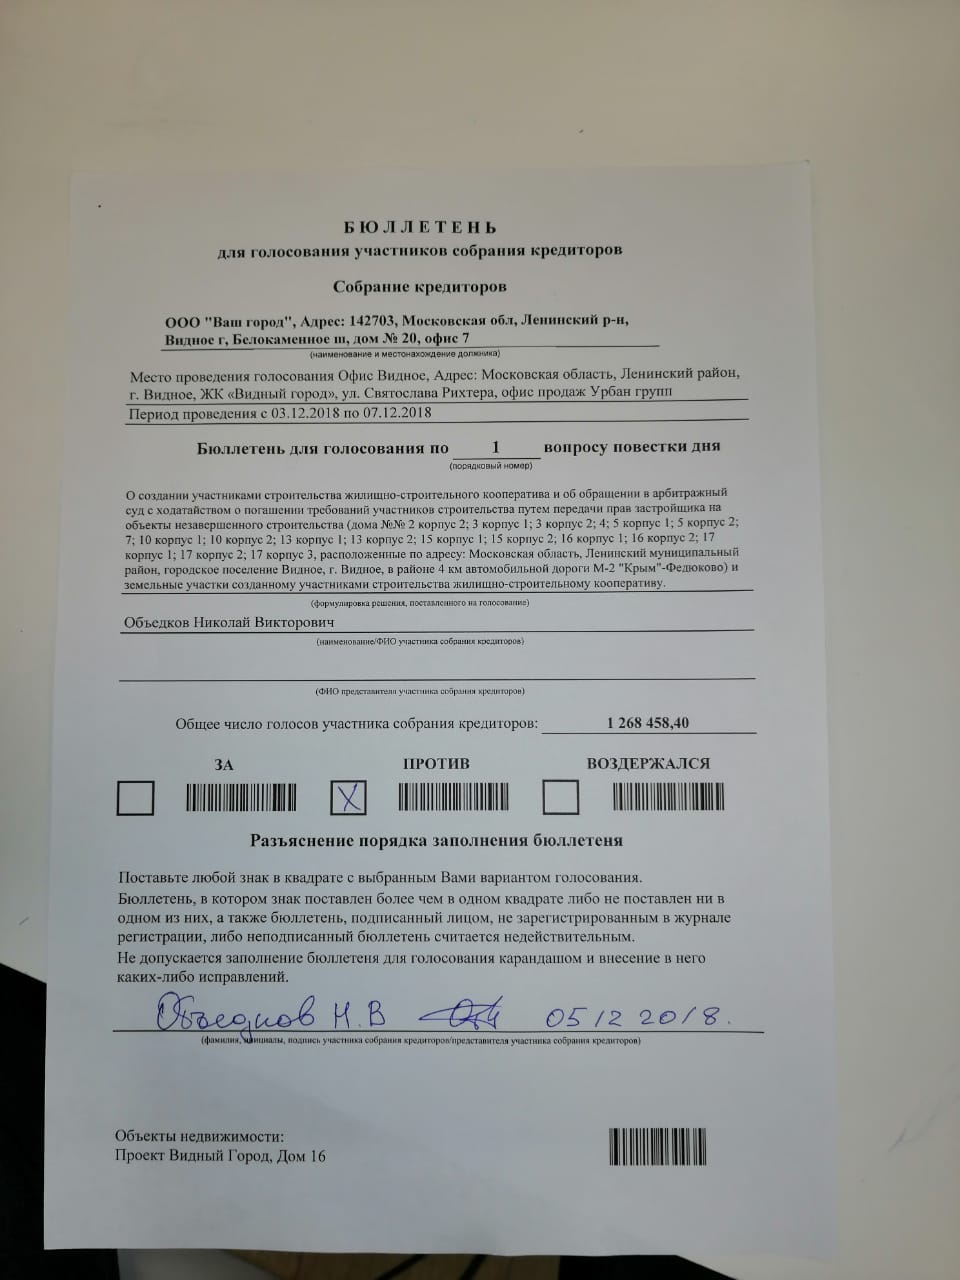 БЮЛЛЕТЕНЬ
для голосования участников собрания кредиторов
Собрание кредиторов
ООО "Ваш город", Адрес: 142703, Московская обл, Ленинский р-н,
Видное г, Белокаменное ш, дом № 20, офис 7
(наименование и местонахождение должника)
Место проведения голосования Офис Видное, Адрес: Московская область, Ленинский район,
г. Видное, ЖК «Видный город», ул. Святослава Рихтера, офис продаж Урбан групп
Период проведения с 03.12.2018 по 07.12.2018
Бюллетень для голосования по 1 вопросу повестки дня
(порядковый номер)
О создании участниками строительства жилищно-строительного кооператива и об обращении в арбитражный
суд с ходатайством о погашении требований участников строительства путем передачи прав застройщика на
объекты незавершенного строительства (дома №№ 2 корпус 2; 3 корпус 1; 3 корпус 2; 4; 5 корпус 1; 5 корпус 2;
7; 10 корпус 1; 10 корпус 2; 13 корпус 1; 13 корпус 2; 15 корпус 1; 15 корпус 2; 16 корпус 1; 16 корпус 2; 17
корпус 1; 17 корпус 2; 17 корпус 3, расположенные по адресу: Московская область, Ленинский муниципальный
район, городское поселение Видное, г. Видное, в районе 4 км автомобильной дороги М-2 "Крым"-Федюково) и
земельные участки созданному участниками строительства жилищно-строительному кооперативу.
(формулировка решения, поставленного на голосование)
Объедков Николай Викторович
(наименование/ФИО участника собрания кредиторов)
(ФИО представителя участника собрания кредиторов)
Общее число голосов участника собрания кредиторов: 1 268 458,40
ЗА ПРОТИВ ВОЗДЕРЖАЛСЯ
X
Разъяснение порядка заполнения бюллетеня
Поставьте любой знак в квадрате с выбранным Вами вариантом голосования.
Бюллетень, в котором знак поставлен более чем в одном квадрате либо не поставлен ни в
одном из них, а также бюллетень, подписанный лицом, не зарегистрированным в журнале
регистрации, либо неподписанный бюллетень считается недействительным.
Не допускается заполнение бюллетеня для голосования карандашом и внесение в него
каких-либо исправлений.
Объедков Н.В 05/12 2018.
(фамилия, инициалы, подпись участника собрания кредиторов/представителя участника собрания кредиторов)
Объекты недвижимости:
Проект Видный Город, Дом 16